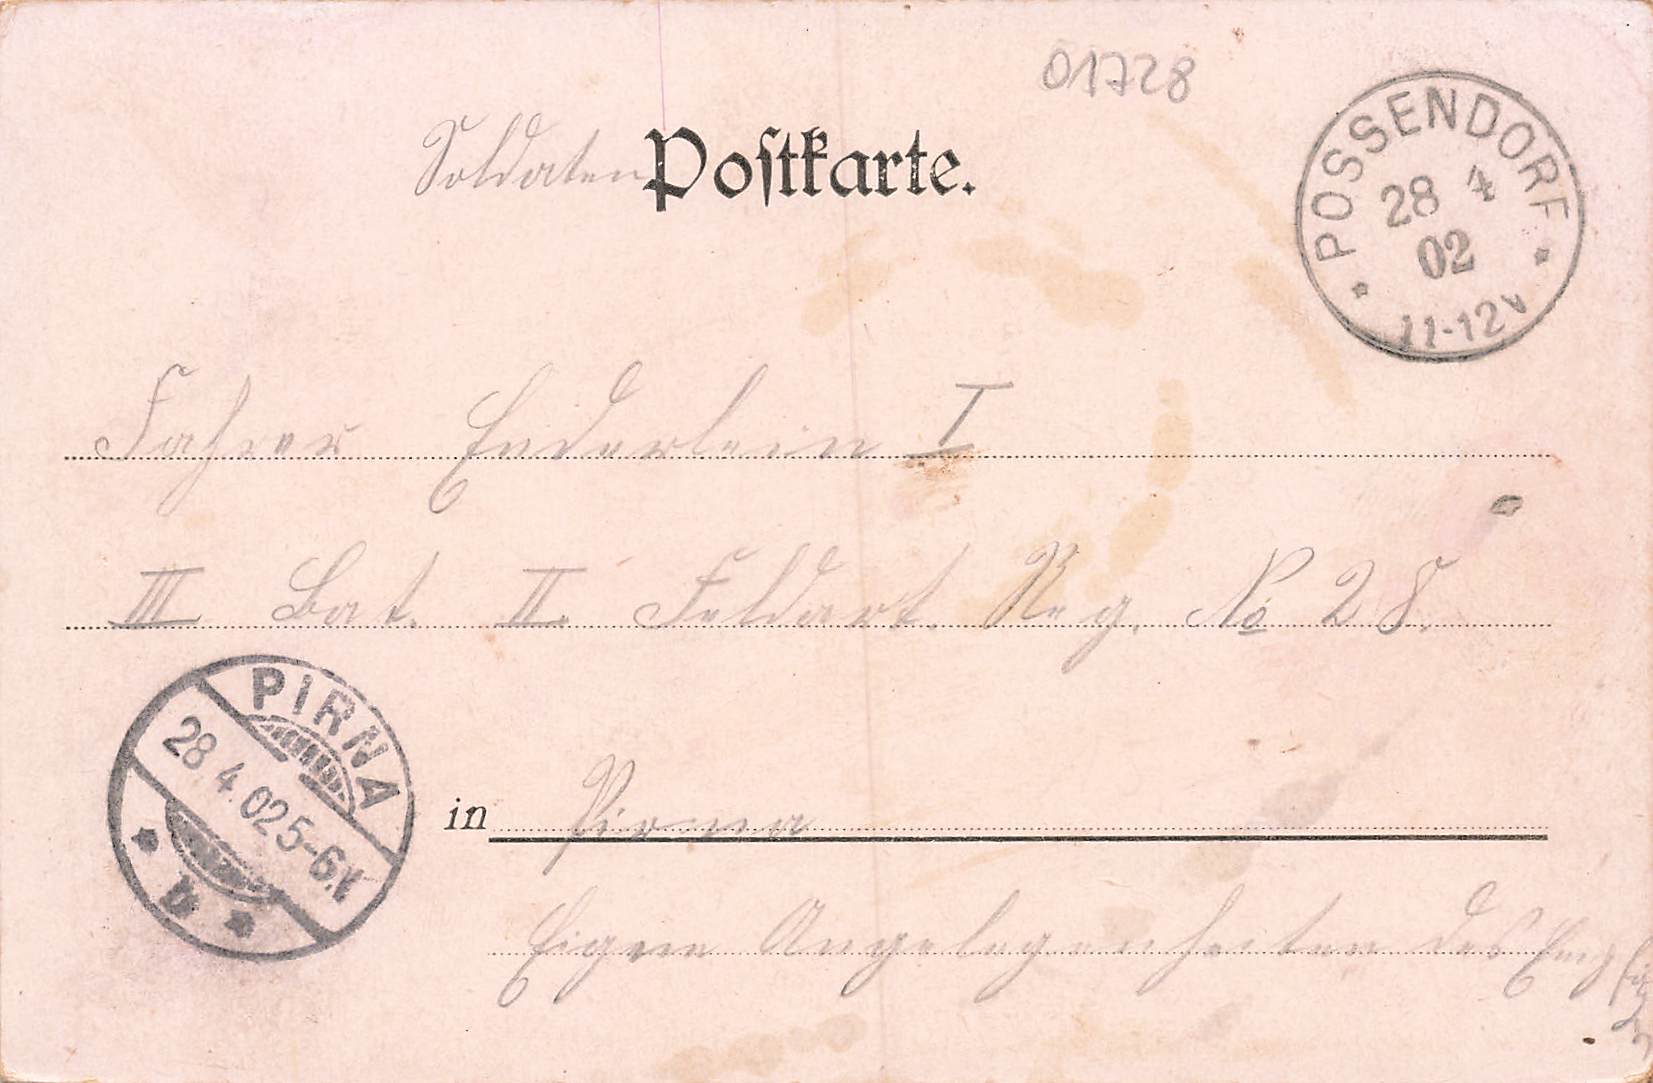 01728
Soldaten Postkarte.
POSSENDORF
28 4
02
11-12V
Fahrer Enderlein I
III Bat. II. Feldart. Reg. No 28.
PIRNA
28.4.02 5-6.N
b
in Pirna
Eigene Angelegenheiten des Empfängers